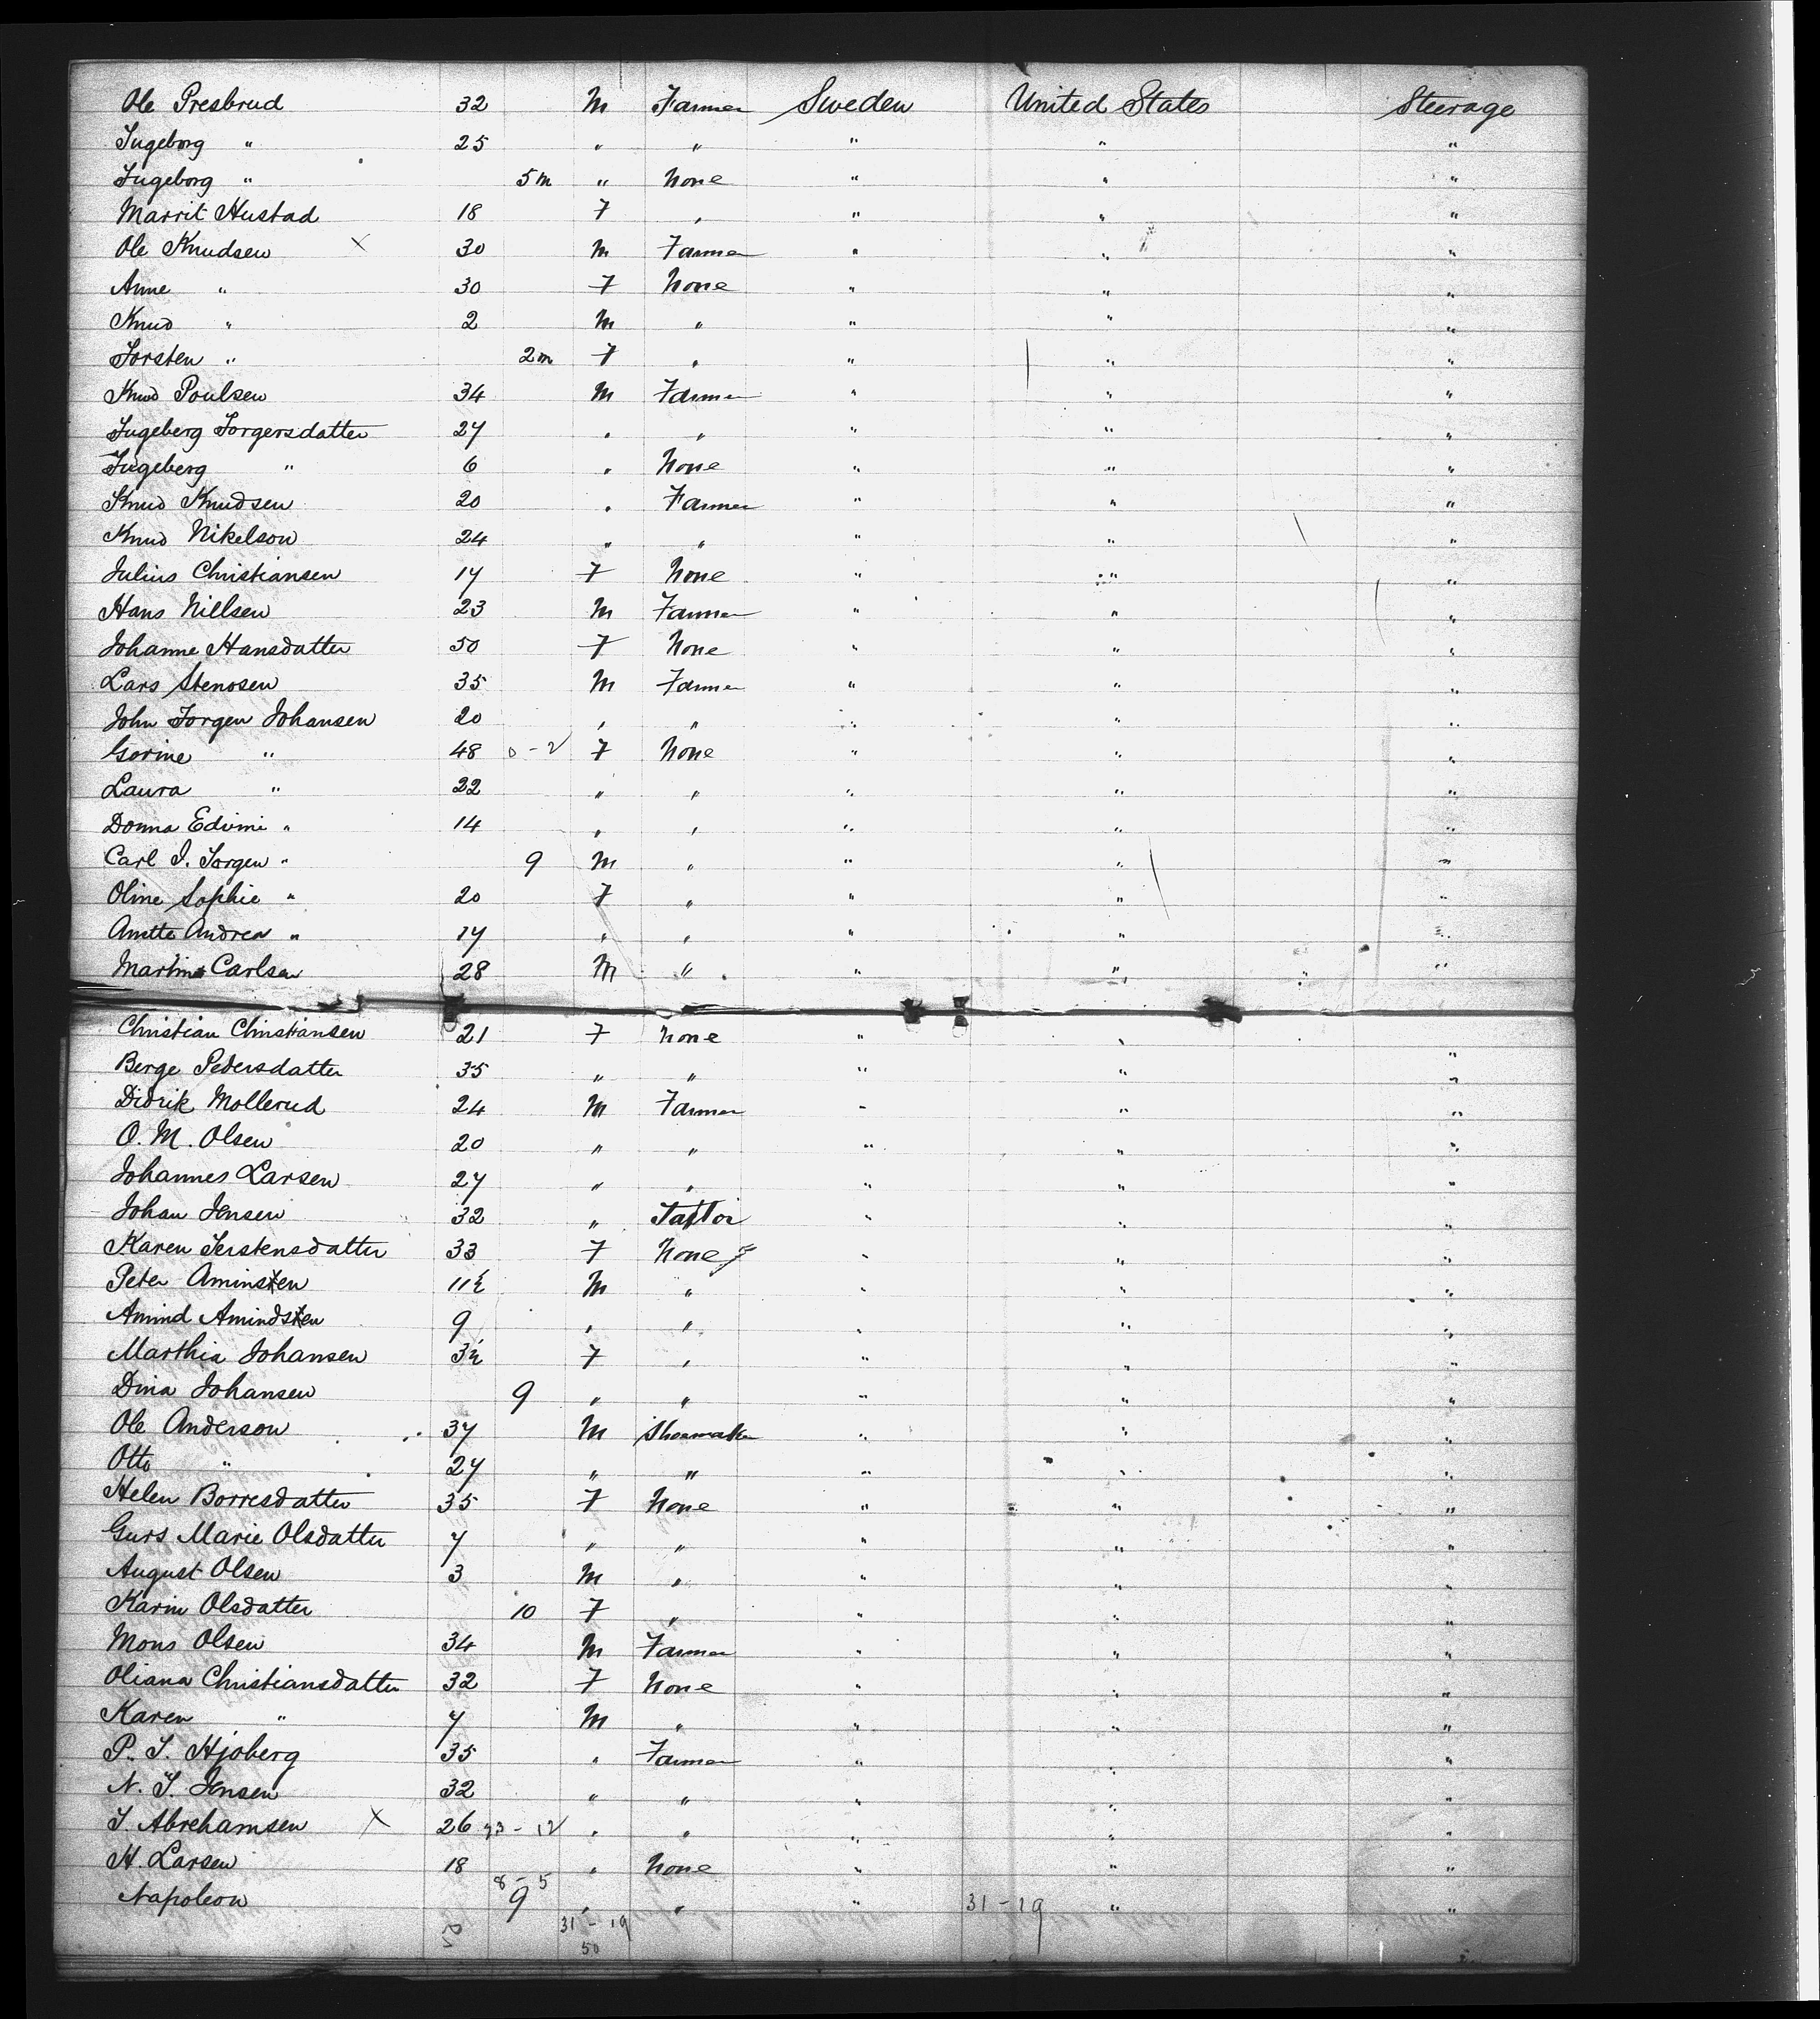 Ole Presbrud 32 M Farmer Sweden United States Steerage
Ingeborg " 25 " " " " "
Ingeborg " 5m " None " " "
Marrit Hustad 18 F " " " "
Ole Knudsen X 30 M Farmer " " "
Anne " 30 F None " " "
Knud " 2 M " " " "
Torsten " 2m F " " " "
Knud Poulsen 34 M Farmer " " "
Ingeberg Torgersdatter 27 " " " " "
Ingeberg " 6 " None " " "
Knud Knudsen 20 " Farmer " " "
Knud Nikelson 24 " " " " "
Julius Christiansen 17 F None " " "
Hans Nillsen 23 M Farmer " " "
Johanne Hansdatter 50 F None " " "
Lars Stenosen 35 M Farmer " " "
John Jorgen Johansen 20 " " " " "
Gorine " 48 F None " " "
Laura " 22 " " " " "
Donna Edvini " 14 " " " " "
Carl J. Jorgen " 9 M " " " "
Oline Sophie " 20 F " " " "
Anette Andrea " 17 " " " " "
Martin Carlsen 28 M " " " "
Christian Christiansen 21 F None " " "
Berge Pedersdatter 35 " " " " "
Didrik Mollerud 24 M Farmer " " "
O. M. Olsen 20 " " " " "
Johannes Larsen 27 " " " " "
Johan Jensen 32 " Tailor " " "
Karen Terstensdatter 33 F None " " "
Peter Aminsten 11½ M " " " "
Amind Amindsten 9 " " " " "
Marthia Johansen 3½ F " " " "
Dina Johansen 9 " " " " "
Ole Anderson 37 M Shoemaker " " "
Otto " 27 " " " " "
Helen Borresdatter 35 F None " " "
Gurs Marie Olsdatter 7 " " " " "
August Olsen 3 M " " " "
Karin Olsdatter 10 F " " " "
Mons Olsen 34 M Farmer " " "
Oliana Christiansdatter 32 F None " " "
Karen " 7 M " " " "
P. T. Hjoberg 35 " Farmer " " "
N. T. Jensen 32 " " " " "
T. Abrehamsen X 26 23 - 12 " " " " "
H. Larsen 18 " None " " "
8 - 5
Napoleon 9 " " " 31 - 19 " "
50 31 - 19
50